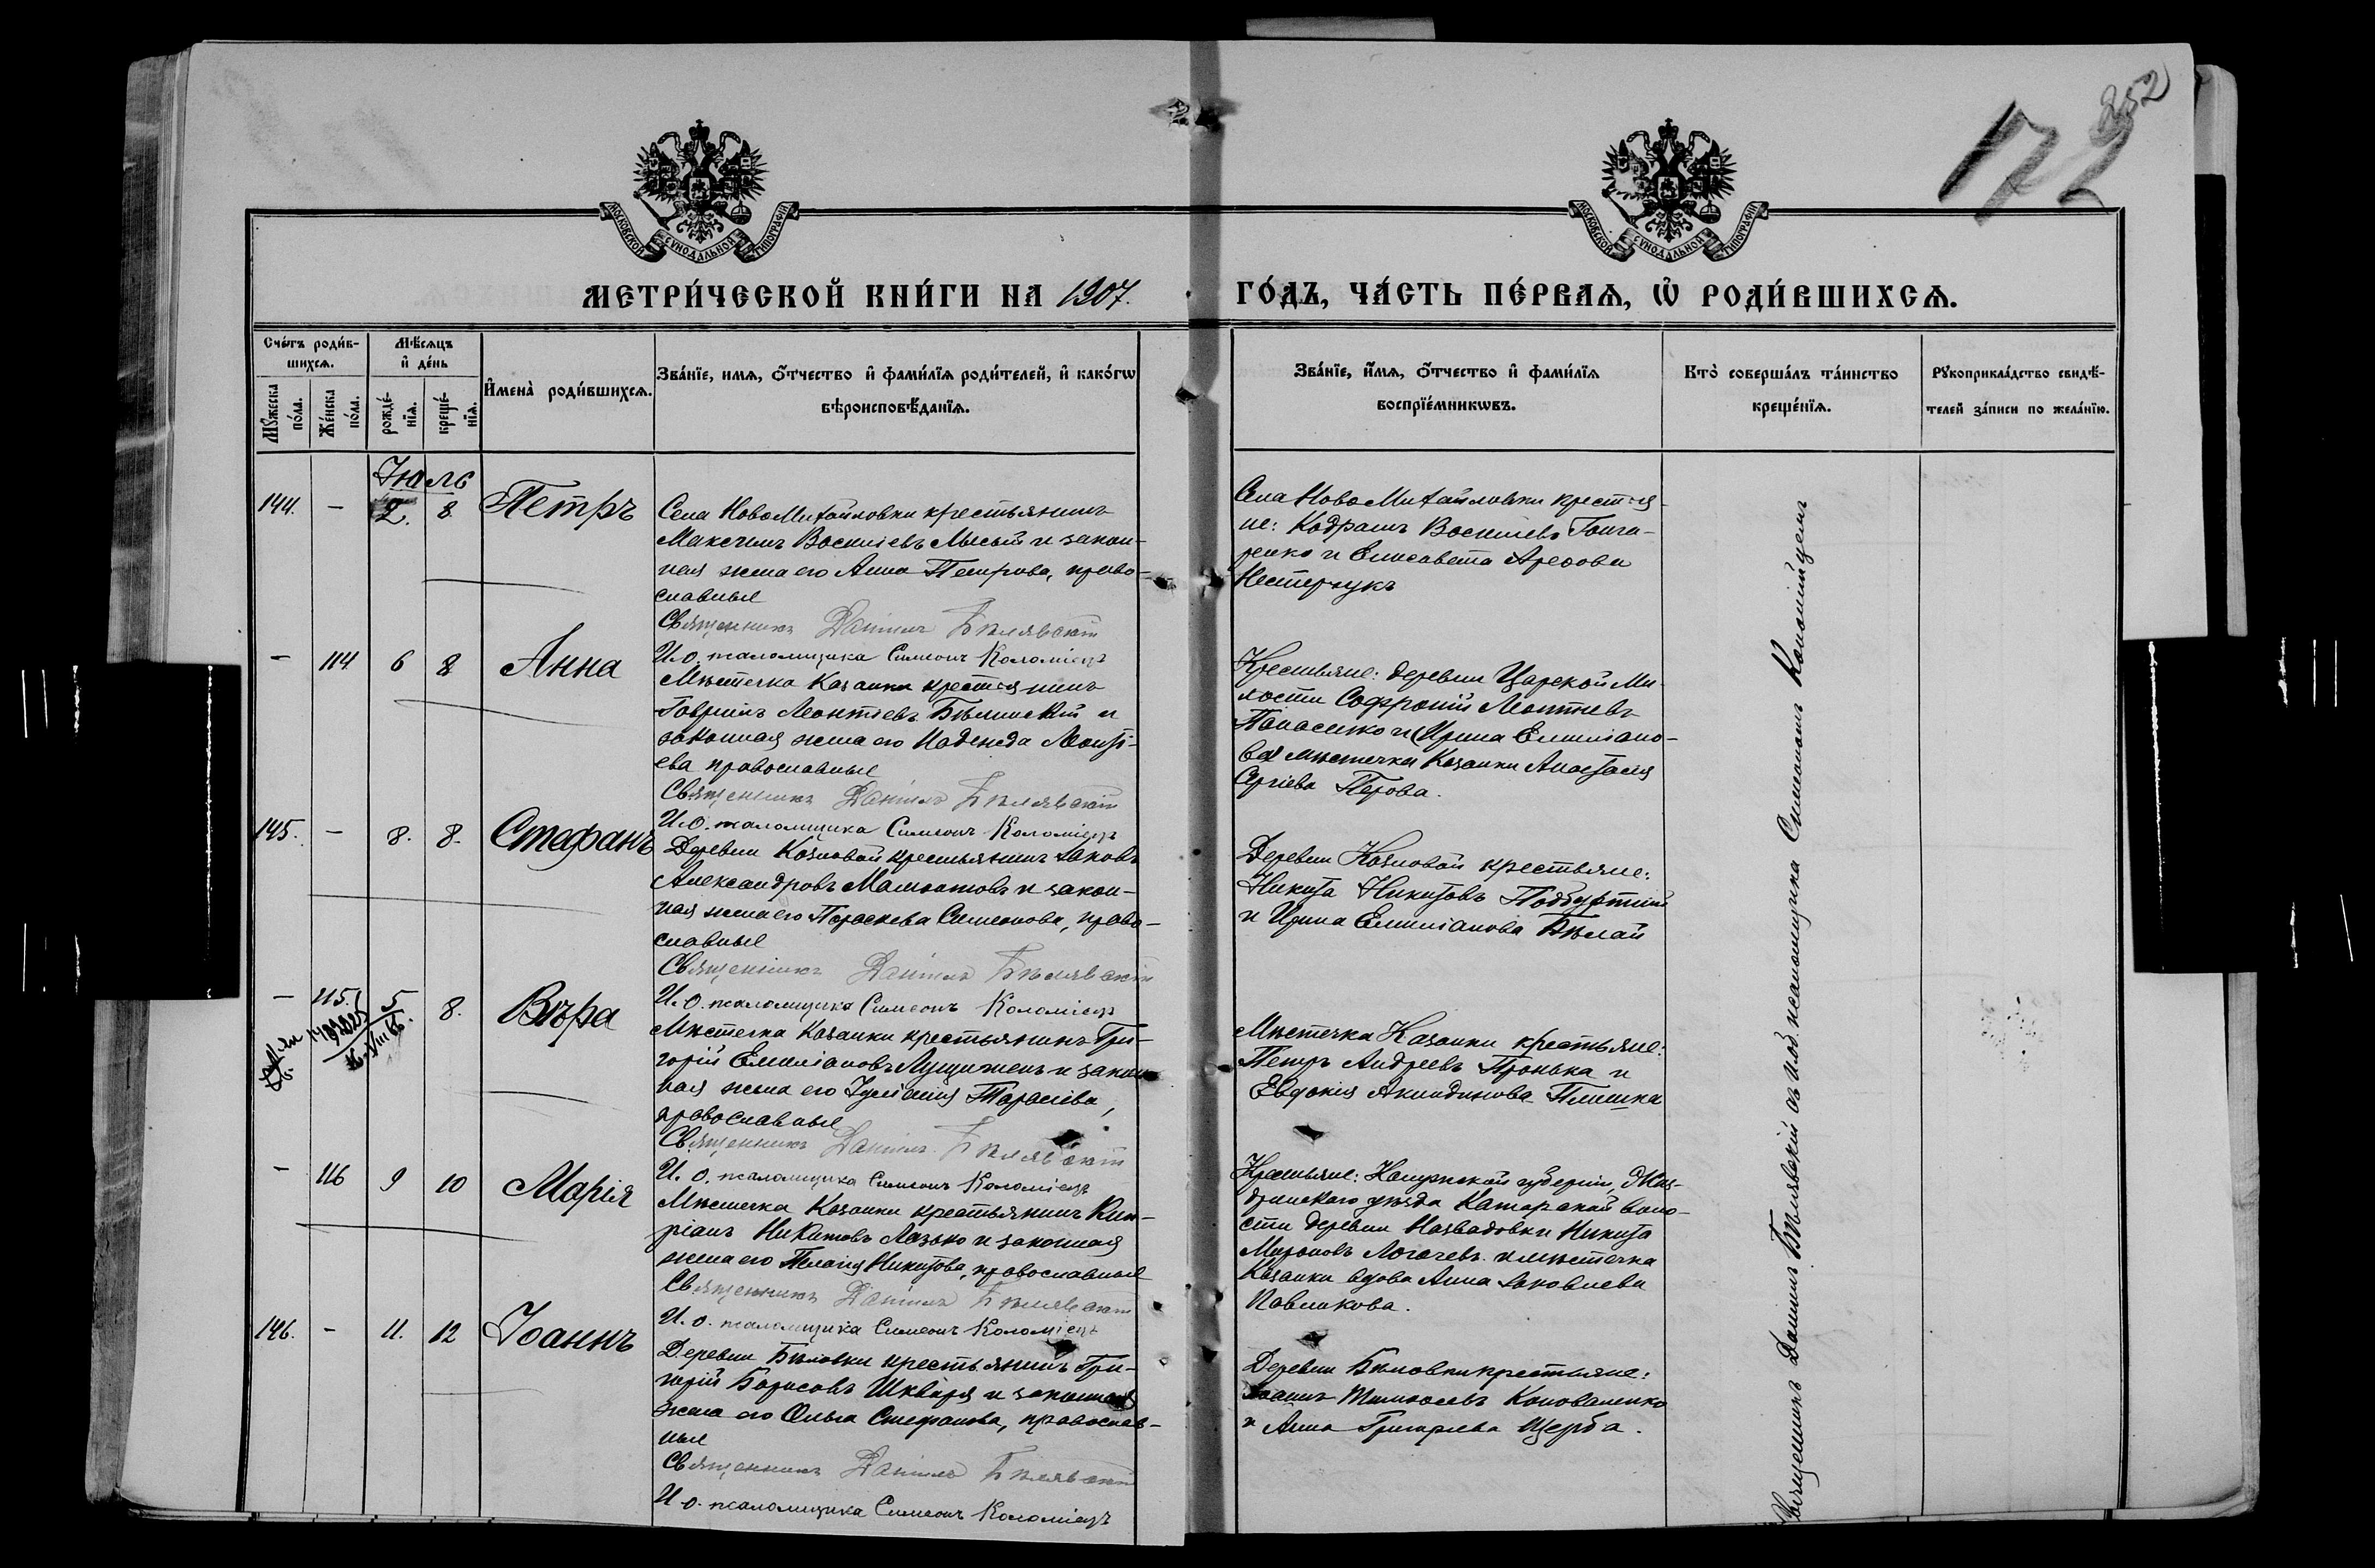 252
172
МОСКОВСКОЙ СѴНОДАЛЬНОЙ ТИПОГРАФІИ
МОСКОВСКОЙ СѴНОДАЛЬНОЙ ТИПОГРАФІИ
МЕТРИ́ЧЕСКОЙ КНИ́ГИ НА 1907.
ГО́ДЪ, ЧА́СТЬ ПЕ́РВАѦ, Ѡ҆ РОДИ́ВШИХСѦ.
Сче́тъ роди́в-
шихсѧ.
Мѣ́сѧцъ
и҆ де́нь
Мꙋ́жеска
по́ла.
Же́нска
по́ла.
рожде́-
нїѧ.
креще́-
нїѧ.
И҆мена̀ роди́вшихсѧ.
Зва́нїе, имѧ, ѻ҆́тчество и҆ фами́лїѧ роди́телей, и҆ како́гѡ
вѣроисповѣ́данїѧ.
Зва́нїе, и҆́мѧ, ѻ҆́тчество и҆ фами́лїѧ
воспрїе́мникѡвъ.
Кто̀ соверша́лъ та́инство
креще́нїѧ.
Рꙋкоприкла́дство свидѣ́-
телей за́писи по жела́нїю.
Іюль
144. - 2. 8 Петръ
Села НовоМихайловки крестьянинъ
Максимъ Васильевъ Лысый и закон-
ная жена его Анна Петрова, право-
славные
Священникъ Даніилъ Бѣлявскій
И. о. псаломщика Симеонъ Коломіецъ
Села НовоМихайловки крестья-
не: Кодратъ Васильевъ Гонча-
ренко и Елисавета Арефова
Нестерчукъ
- 114 6 8 Анна
Мѣстечка Казанки крестьянинъ
Гавріилъ Леонтіевъ Бѣлинскій и
законная жена его Надежда Леонті-
ева православные
Священникъ Даніилъ Бѣлявскій
И. о. псаломщика Симеонъ Коломіецъ
Крестьяне: деревни Царской Ми-
лости Софроній Леонтіевъ
Панасенко и Ирина Емиліано-
ва мѣстечка Казанки Анастасія
Сергіева Перова.
145. - 8. 8. Стефанъ
Деревни Козловой крестьянинъ Іаковъ
Александровъ Мамонтовъ и закон-
ная жена его Параскева Симеонова, право-
славные
Священникъ Даніилъ Бѣлявскій
И. о. псаломщика Симеонъ Коломіецъ
Деревни Козловой крестьяне:
Никита Никитовъ
и Ирина Емиліанова Бѣлай
- 115. 5 8. Вѣра
Мѣстечка Казанки крестьянинъ Гри-
горій Емиліановъ и закон-
ная жена его Іуліанія Тарасіева,
православные
Священникъ Даніилъ Бѣлявскій
И. о. псаломщика Симеонъ Коломіецъ
Мѣстечка Казанки крестьяне:
Петръ Андреевъ Пронька и
Евдокія Акиндинова Плишка
- 116 9 10 Марія
Мѣстечка Казанки крестьянинъ Кип-
ріанъ Никитовъ Лазько и законная
жена его Пелагія Никитова, православные
Священникъ Даніилъ Бѣлявскій
И. о. псаломщика Симеонъ Коломіецъ
Крестьяне: Калужской губерніи, Жиз-
дринскаго уѣзда воло-
сти деревни Никита
Мироновъ Логачевъ и мѣстечка
Казанки вдова Анна Іаковлева
Павликова.
146. - 11. 12 Іоаннъ
Деревни Бѣловки крестьянинъ Гри-
горій Борисовъ Шкваря и законная
жена его Ольга Стефанова, православ-
ные
Священникъ Даніилъ Бѣлявскій
И. о. псаломщика Симеонъ Коломіецъ
Деревни Бѣловки крестьяне:
Іоаннъ Тимофеевъ Коноваленко
и Анна Григорьева Щерба.
Священникъ Даніилъ Бѣлявскій съ и. об. псаломщика Симеономъ Коломійцемъ